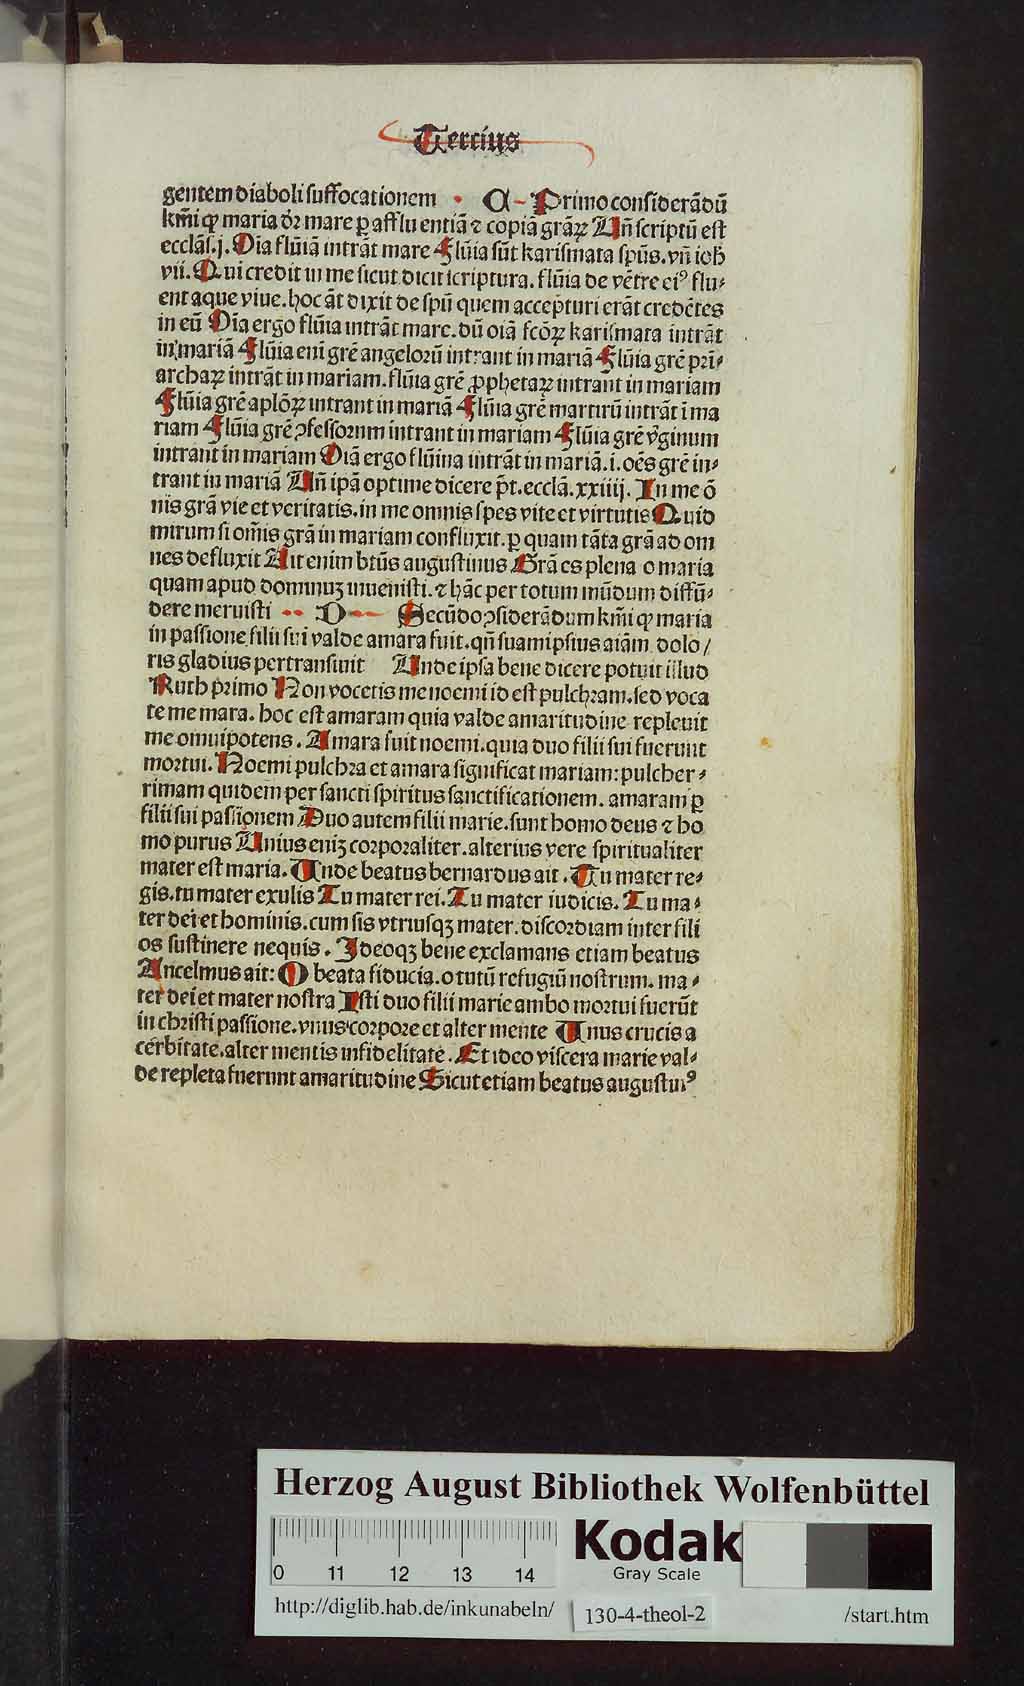 Tercius
gentem diaboli suffocationem · A – Primo considerādū
km̄i ꝙ maria dr̄ mare ꝑ affluentiā ⁊ copiā grāꝝ Un̄ scriptū est
ecclās. j. Oīa flūia intrāt mare Flūia sūt karismata spūs. vn̄ ioh̄
vii. Qui credit in me sicut dicit scriptura. flūia de vētre ei⁹ flu-
ent aque viue. hoc āt dixit de spū quem accepturi erāt credētes
in eū Oīa ergo flūia intrāt mare. dū oīā scōꝝ karismata intrāt
in mariā Flūia enī grē angelorū intrant in mariā Flūia grē pri-
archaꝝ intrāt in mariam. flūia grē ꝓphetaꝝ intrant in mariam
Flūia grē aplōꝝ intrant in mariā Flūia grē martirū intrāt ī ma
riam Flūia grē ꝯfessorum intrant in mariam Flūia grē v̄ginum
intrant in mariam Oīā ergo flūina intrāt in mariā. i. oēs grē in-
trant in mariā Un̄ ipā optime dicere p̄t. ecclā. xxiiij. In me ō
nis grā vie et veritatis. in me omnis spes vite et virtutis Quid
mirum si om̄is grā in mariam confluxit. ꝑ quam tāta grā ad om
nes defluxit Ait enim btūs augustinus Grā es plena o maria
quam apud dominuꝫ inuenisti. ⁊ hāc per totum mūdum diffū-
dere meruisti ·· D – Secūdo ꝯsiderādum km̄i ꝙ maria
in passione filii sui valde amara fuit. qn̄ suam ipsius aīām dolo/
ris gladius pertransiuit Unde ipsa bene dicere potuit illud
Ruth primo Non vocetis me noemi id est pulchram. sed voca
te me mara. hoc est amaram quia valde amaritudine repleuit
me omnipotens. Amara fuit noemi. quia duo filii sui fuerunt
mortui. Noemi pulchra et amara significat mariam: pulcher-
rimam quidem per sancti spiritus sanctificationem. amaram ꝑ
filii sui passionem Duo autem filii marie. sunt homo deus ⁊ ho
mo purus Unius eniꝫ corporaliter. alterius vere spiritualiter
mater est maria. Unde beatus bernardus ait. Tu mater re-
gis. tu mater exulis Tu mater rei. Tu mater iudicis. Tu ma-
ter dei et hominis. cum sis vtriusqꝫ mater. discordiam inter fili
os sustinere nequis. Ideoqꝫ bene exclamans etiam beatus
Ancelmus ait: O beata fiducia. o tutū refugiū nostrum. ma-
ter dei et mater nostra Isti duo filii marie ambo mortui fuerūt
in christi passione. vnus corpore et alter mente Unus crucis a
cerbitate. alter mentis infidelitate. Et ideo viscera marie val-
de repleta fuerunt amaritudine Sicut etiam beatus augustin⁹
Herzog August Bibliothek Wolfenbüttel
0 11 12 13 14
Kodak
Gray Scale
http://diglib.hab.de/inkunabeln/ 130-4-theol-2 /start.htm